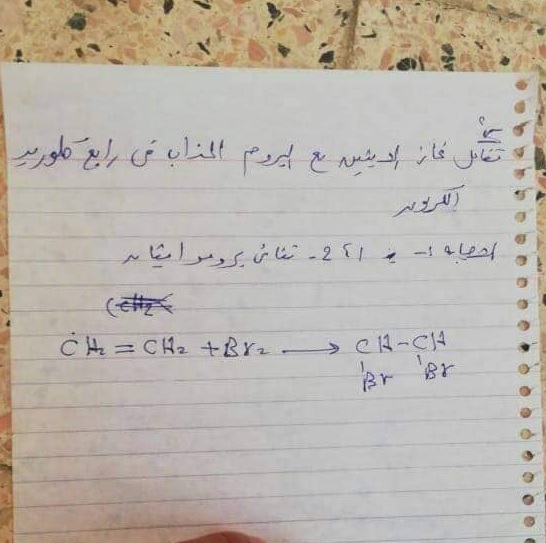 س/
تفاعل غاز الايثين مع البروم المذاب في رابع كلوريد
الكربون
الاجابه /- 1،2- ثنائي برومو ايثان
(CH2
CH2 = CH2 + Br2 → CH-CH
Br Br